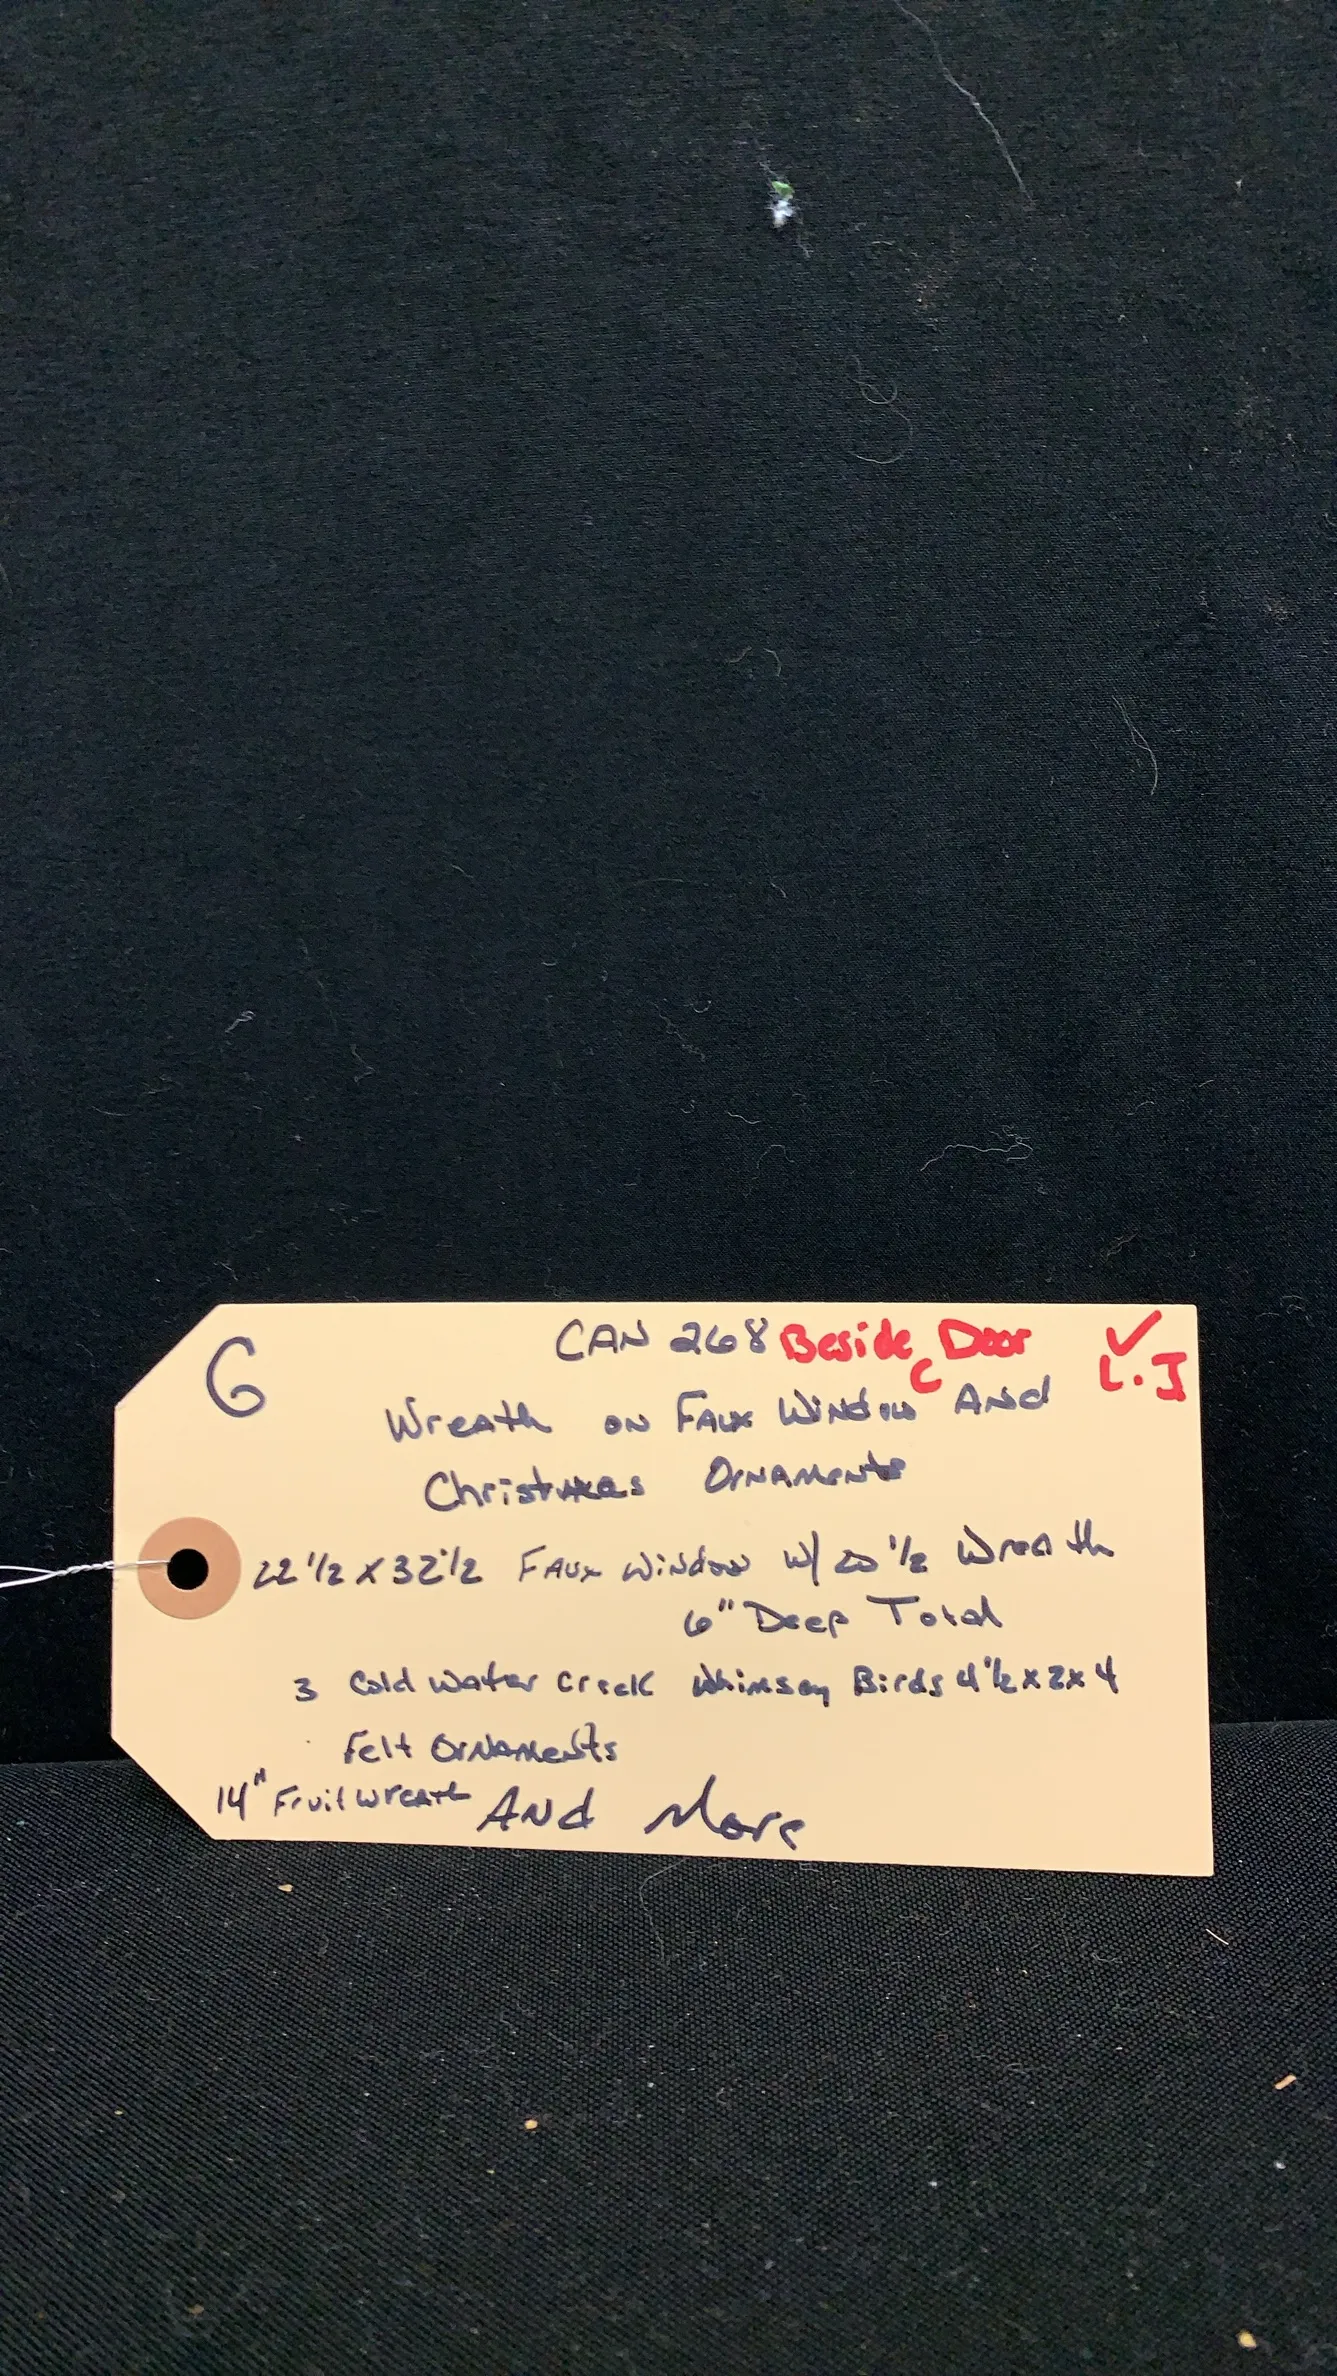 G
CAN 268 Beside C Door ✓ L.J
Wreath on Faux Window And
Christmas Ornaments
22 1/2 x 32 1/2 Faux Window w/ 20 1/2 Wreath
6" Deep Total
3 Cold Water Creek Whimsey Birds 4 1/2 x 2 x 4
Felt Ornaments
14" Fruit Wreath And More